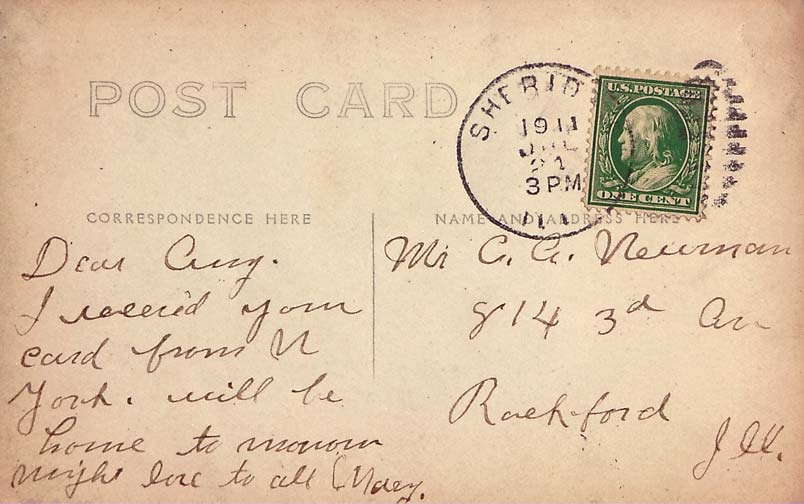 POST CARD
SHERID
1911
JUL
21
3 PM
ILL
U.S. POSTAGE
ONE CENT
CORRESPONDENCE HERE
NAME AND ADDRESS HERE
Dear
I receied your
card from N
York. will be
home to morrow
night love to all
Mr C. A. Newman
814 3d Av
Rockford
Ill.